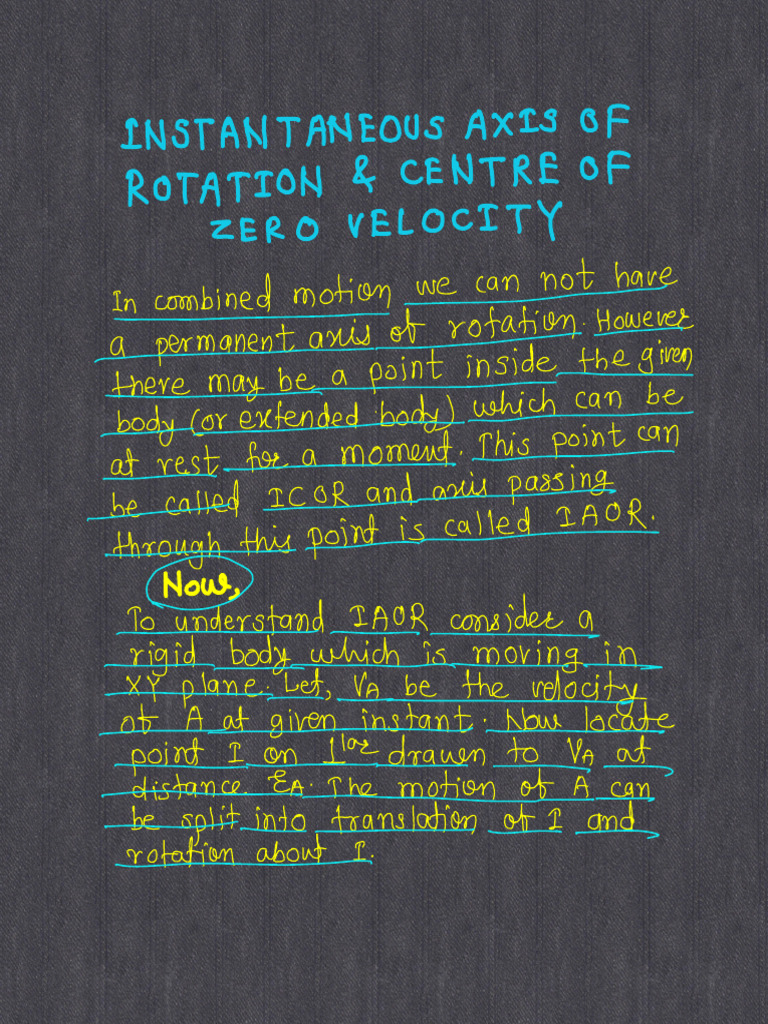 INSTANTANEOUS AXIS OF
ROTATION & CENTRE OF
ZERO VELOCITY
In combined motion we can not have
a permanent axis of rotation. However
there may be a point inside the given
body (or extended body) which can be
at rest for a moment. This point can
be called ICOR and axis passing
through this point is called IAOR.
Now,
To understand IAOR consider a
rigid body which is moving in
XY plane. Let, VA be the velocity
of A at given instant. Now locate
point I on ⊥lar drawn to VA at
distance. rA. The motion of A can
be split into translation of I and
rotation about I.